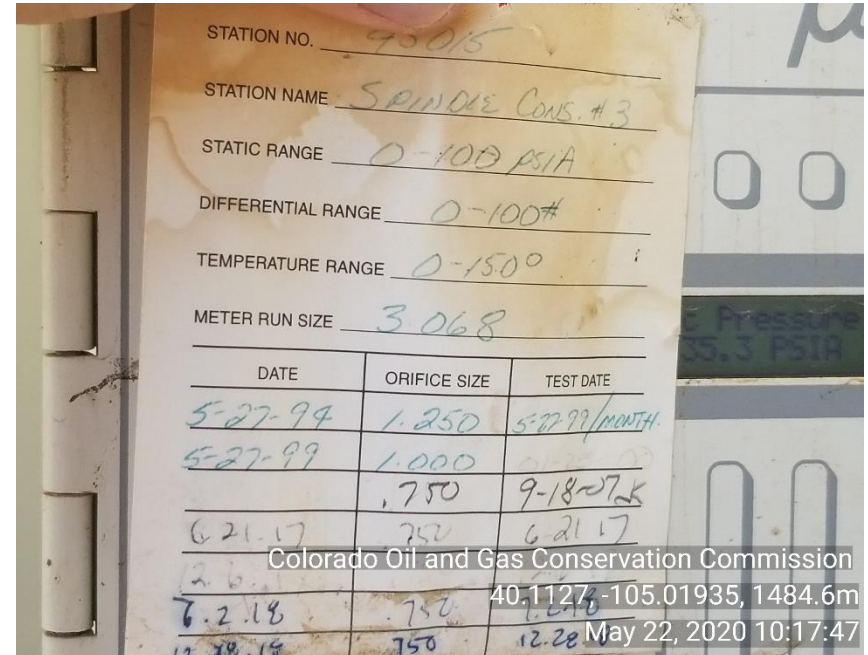 STATION NO. 93015
STATION NAME SPINDLE CONS. #3
STATIC RANGE 0-100 PSIA
DIFFERENTIAL RANGE 0-100#
TEMPERATURE RANGE 0-150°
METER RUN SIZE 3.068
Pressure
35.3 PSIA
DATE ORIFICE SIZE TEST DATE
5-27-99 1.250 5-27-99/MONTH.
5-27-99 1.000
.750 9-18-07
6.21.17 .750 6-21 17
7.2.18 .750
750 12.28
Colorado Oil and Gas Conservation Commission
40.1127, -105.01935, 1484.6m
May 22, 2020 10:17:47